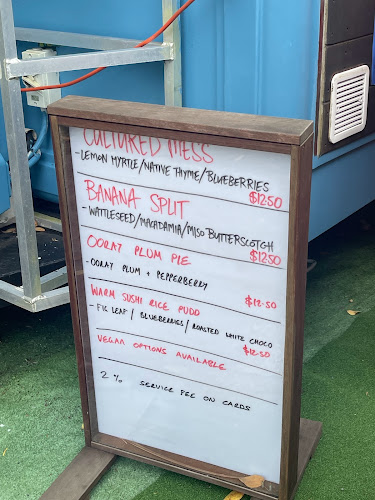 CULTURED MESS
- LEMON MYRTLE/NATIVE THYME/BLUEBERRIES
$12.50
BANANA SPLIT
- WATTLESEED/MACADAMIA/MISO BUTTERSCOTCH
$12.50
OORAY PLUM PIE
- OORAY PLUM + PEPPERBERRY
$12.50
WARM SUSHI RICE PUDD
- FIG LEAF / BLUEBERRIES / ROASTED WHITE CHOCO
$12.50
VEGAN OPTIONS AVAILABLE
2% SERVICE FEE ON CARDS